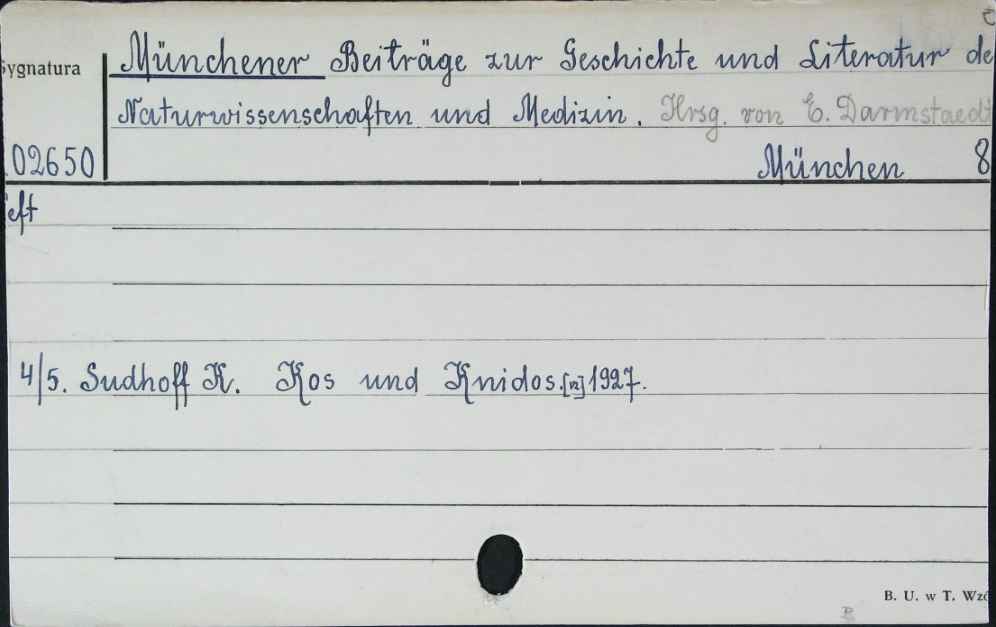 Sygnatura Münchener Beiträge zur Geschichte und Literatur de
Naturwissenschaften und Medizin. Hrsg. von E. Darmstaedt
02650 München 8
eft
4/5. Sudhoff K. Kos und Knidos.[n] 1927.
B. U. w T. Wzó